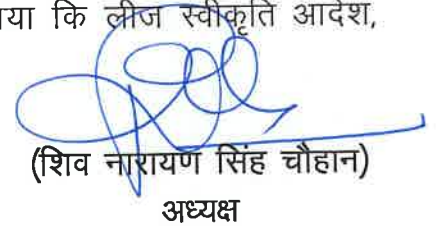 या कि लीज स्वीकृति आदेश,
(शिव नारायण सिंह चौहान)
अध्यक्ष